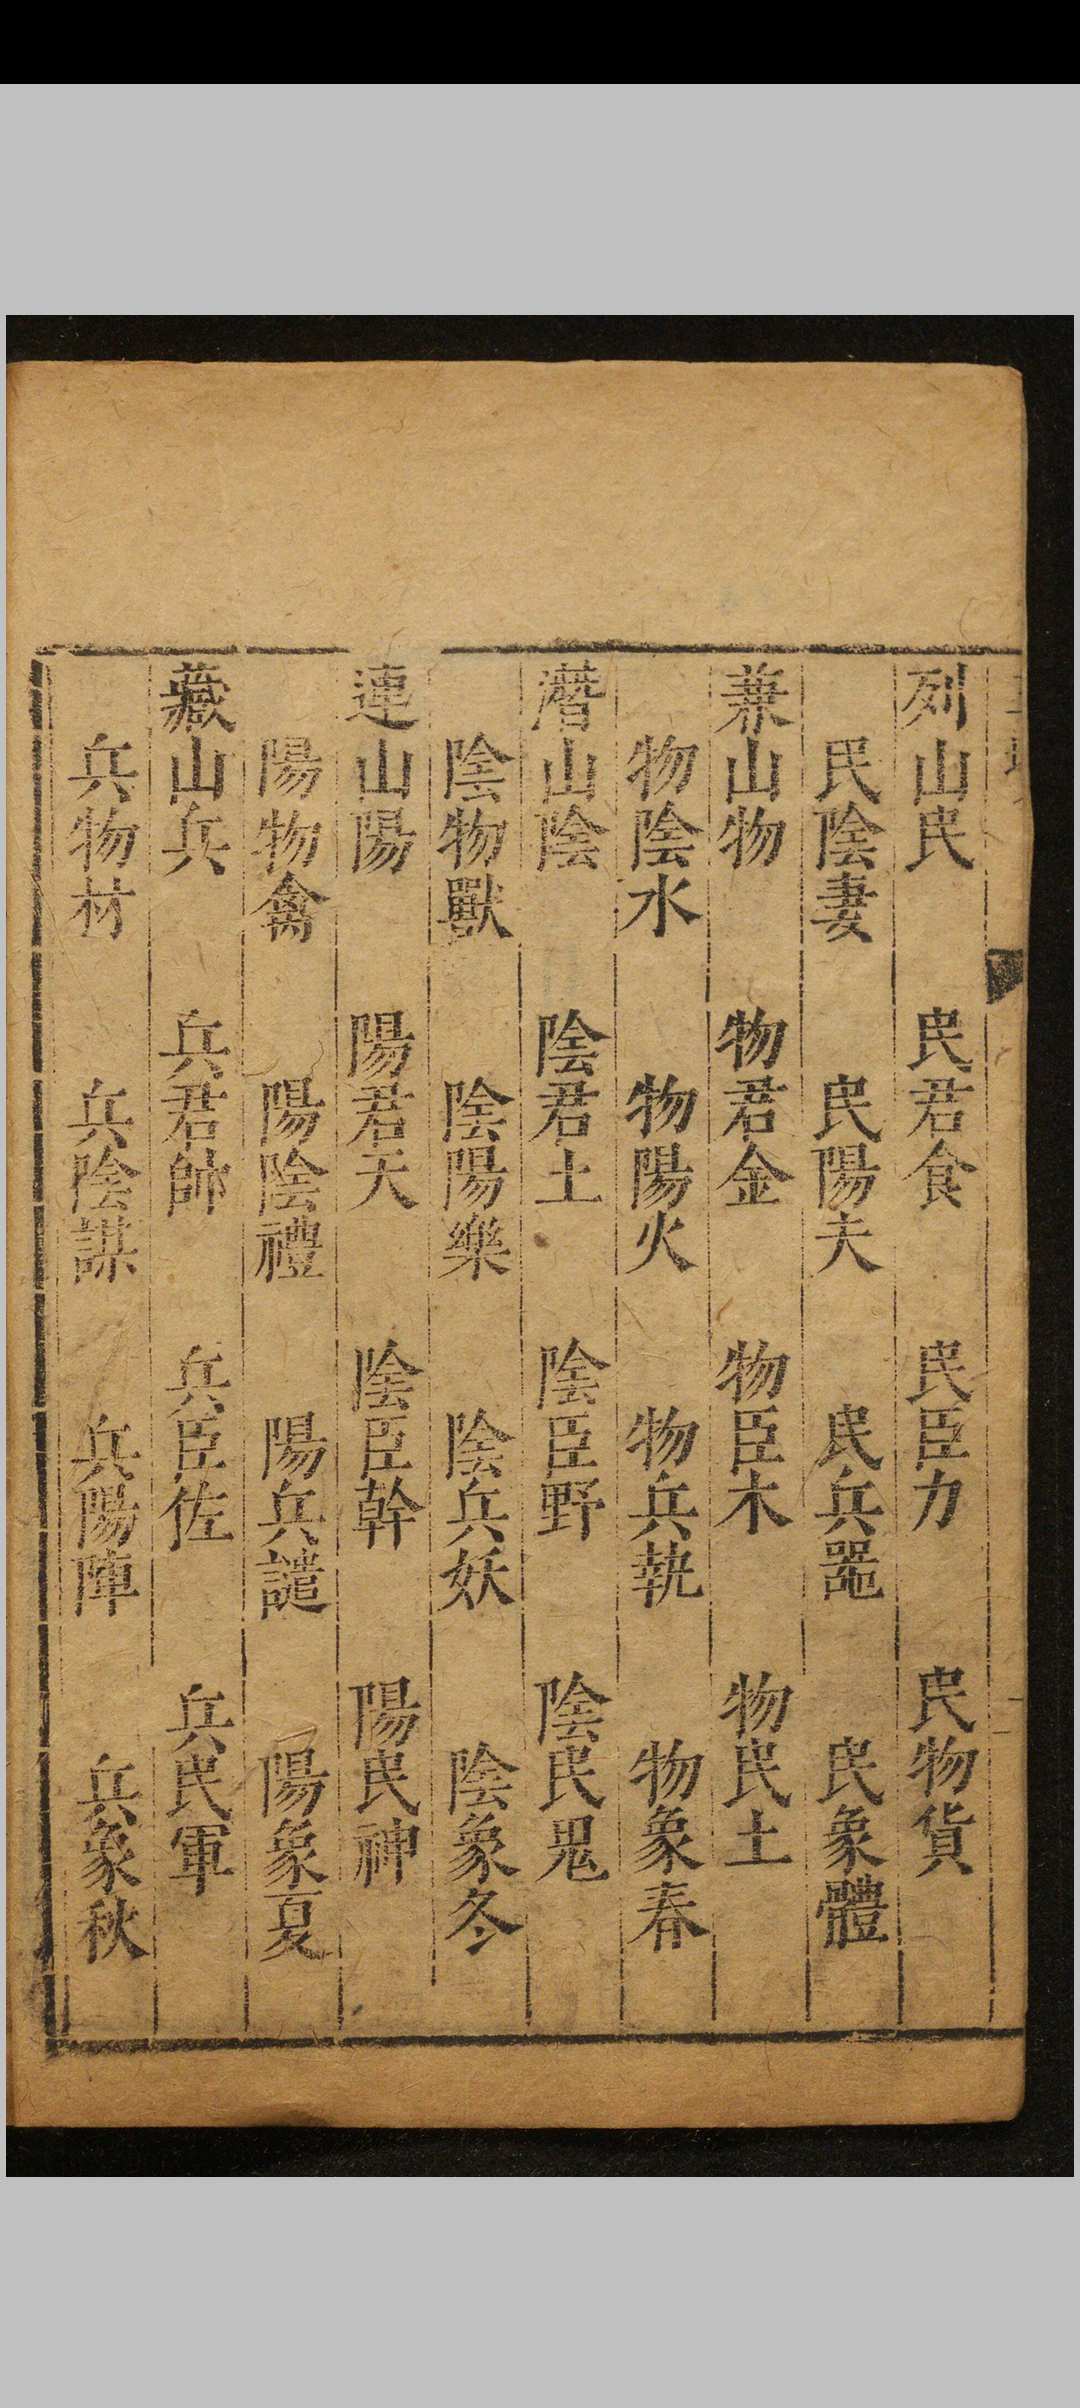 列山民　民君食　民臣力　民物貨
民陰妻　民陽夫　民兵器　民象體
兼山物　物君金　物臣木　物民土
物陰水　物陽火　物兵執　物象春
潛山陰　陰君土　陰臣野　陰民鬼
陰物獸　陰陽樂　陰兵妖　陰象冬
連山陽　陽君天　陰臣幹　陽民神
陽物禽　陽陰禮　陽兵譴　陽象夏
藏山兵　兵君帥　兵臣佐　兵民軍
兵物材　兵陰謀　兵陽陣　兵象秋